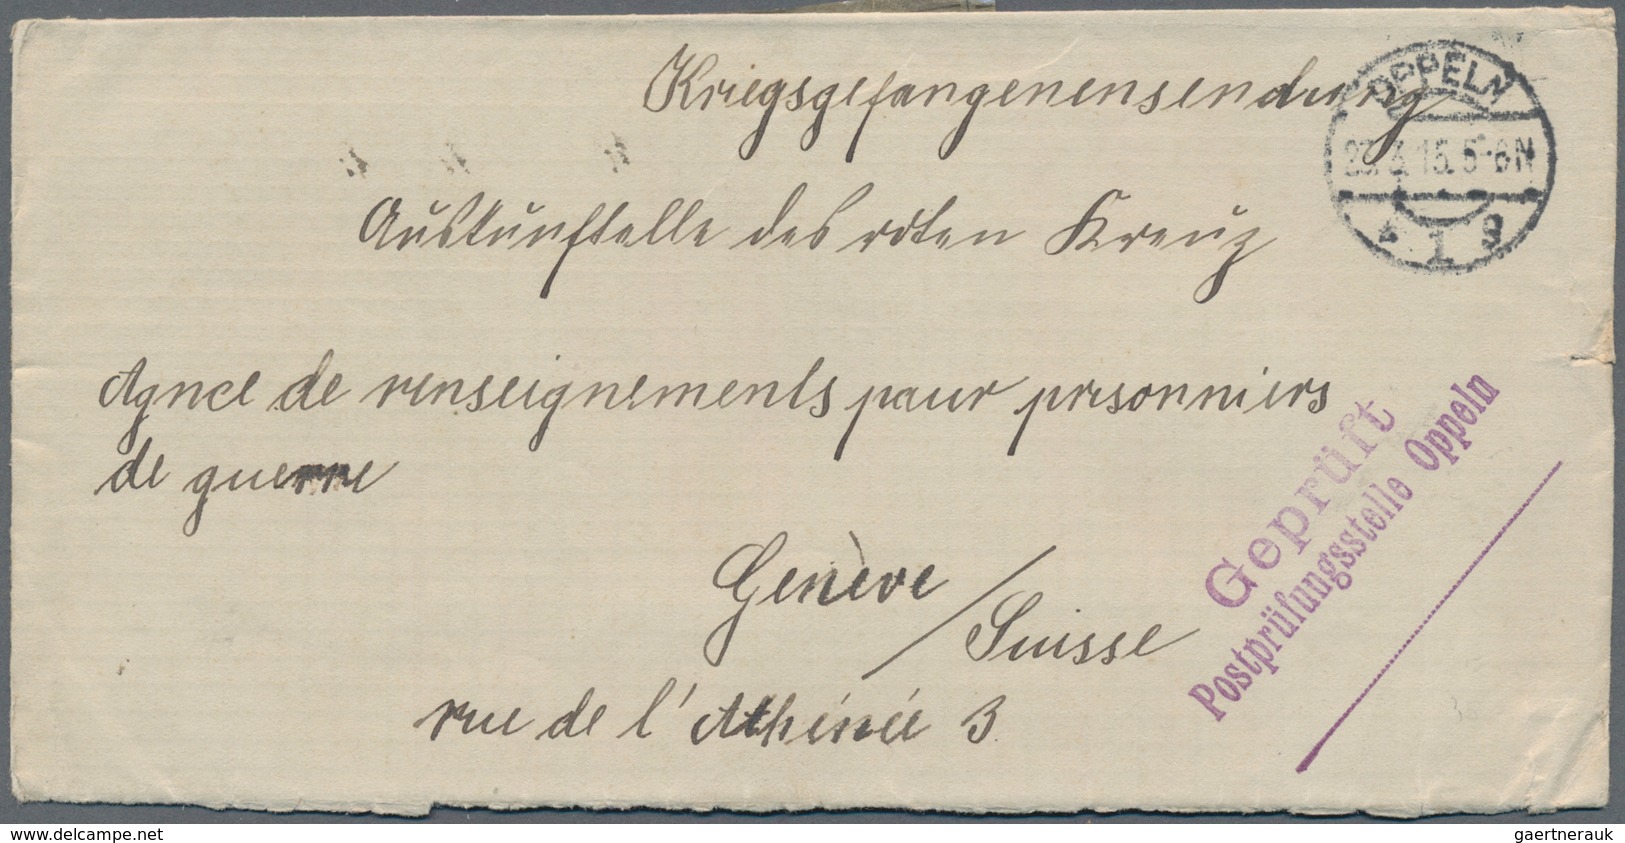 Kriegsgefangenensendung
OPPELN
23.3.15.5-6N
* 1 g
Auskunftstelle des roten Kreuz
Agnce de renseignements paur prisonniers
de guerre
Genève / Suisse
rue de l'Athénée 3
Geprüft
Postprüfungsstelle Oppeln
www.delcampe.net
gaertnerauk